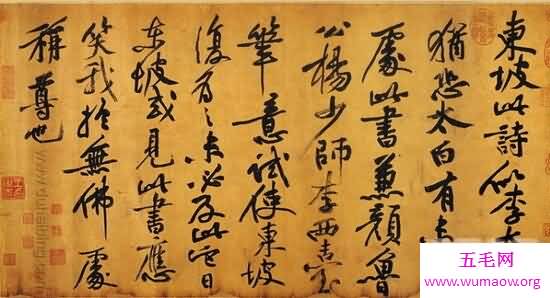 東坡此詩似李太
猶恐太白有未
處此書兼顏魯
公楊少師李西臺
筆意試使東坡
復為之未必及此它日
東坡或見此書應
笑我於無佛處
稱尊也
五毛网
www.wumaow.org